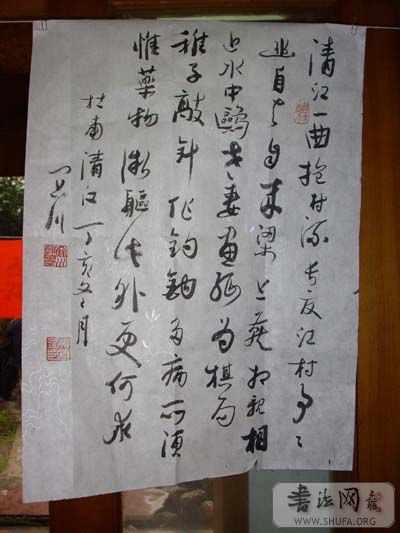 清江一曲抱村流长夏江村事々
幽自去自来梁上燕相親相
近水中鷗老妻画纸为棋局
稚子敲针作钓鈎多病所须
惟藥物微軀此外更何求
杜甫清江丁亥冬月
書法网
WWW.SHUFA.ORG